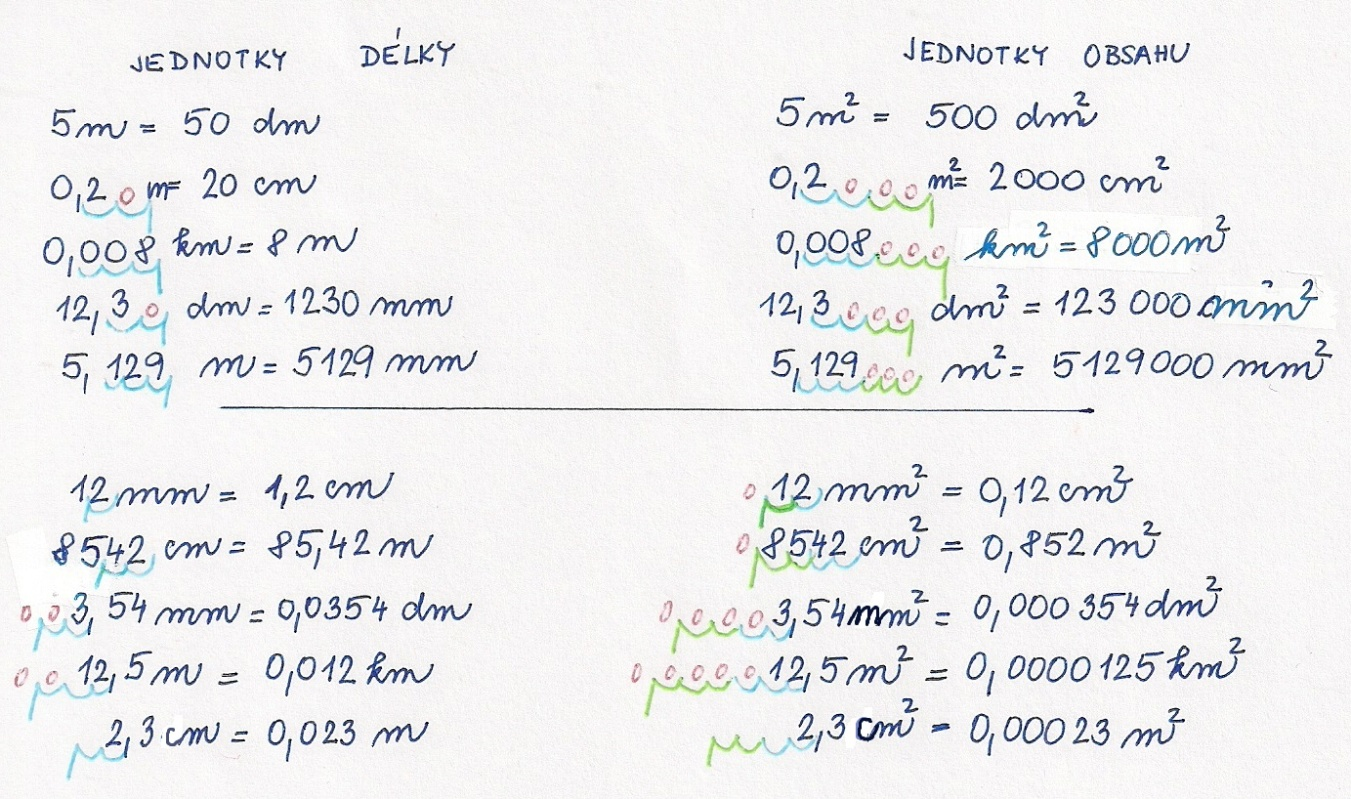 JEDNOTKY DÉLKY
5m = 50 dm
0,20 m = 20 cm
0,008 km = 8 m
12,30 dm = 1230 mm
5,129 m = 5129 mm
12 mm = 1,2 cm
8542 cm = 85,42 m
003,54 mm = 0,0354 dm
0012,5 m = 0,012 km
2,3 cm = 0,023 m
JEDNOTKY OBSAHU
5m² = 500 dm²
0,2000 m² = 2000 cm²
0,008000 km² = 8000 m²
12,3000 dm² = 123 000 mm²
5,129000 m² = 5129000 mm²
012 mm² = 0,12 cm²
08542 cm² = 0,852 m²
00003,54 mm² = 0,000354 dm²
0000012,5 m² = 0,0000125 km²
2,3 cm² = 0,00023 m²